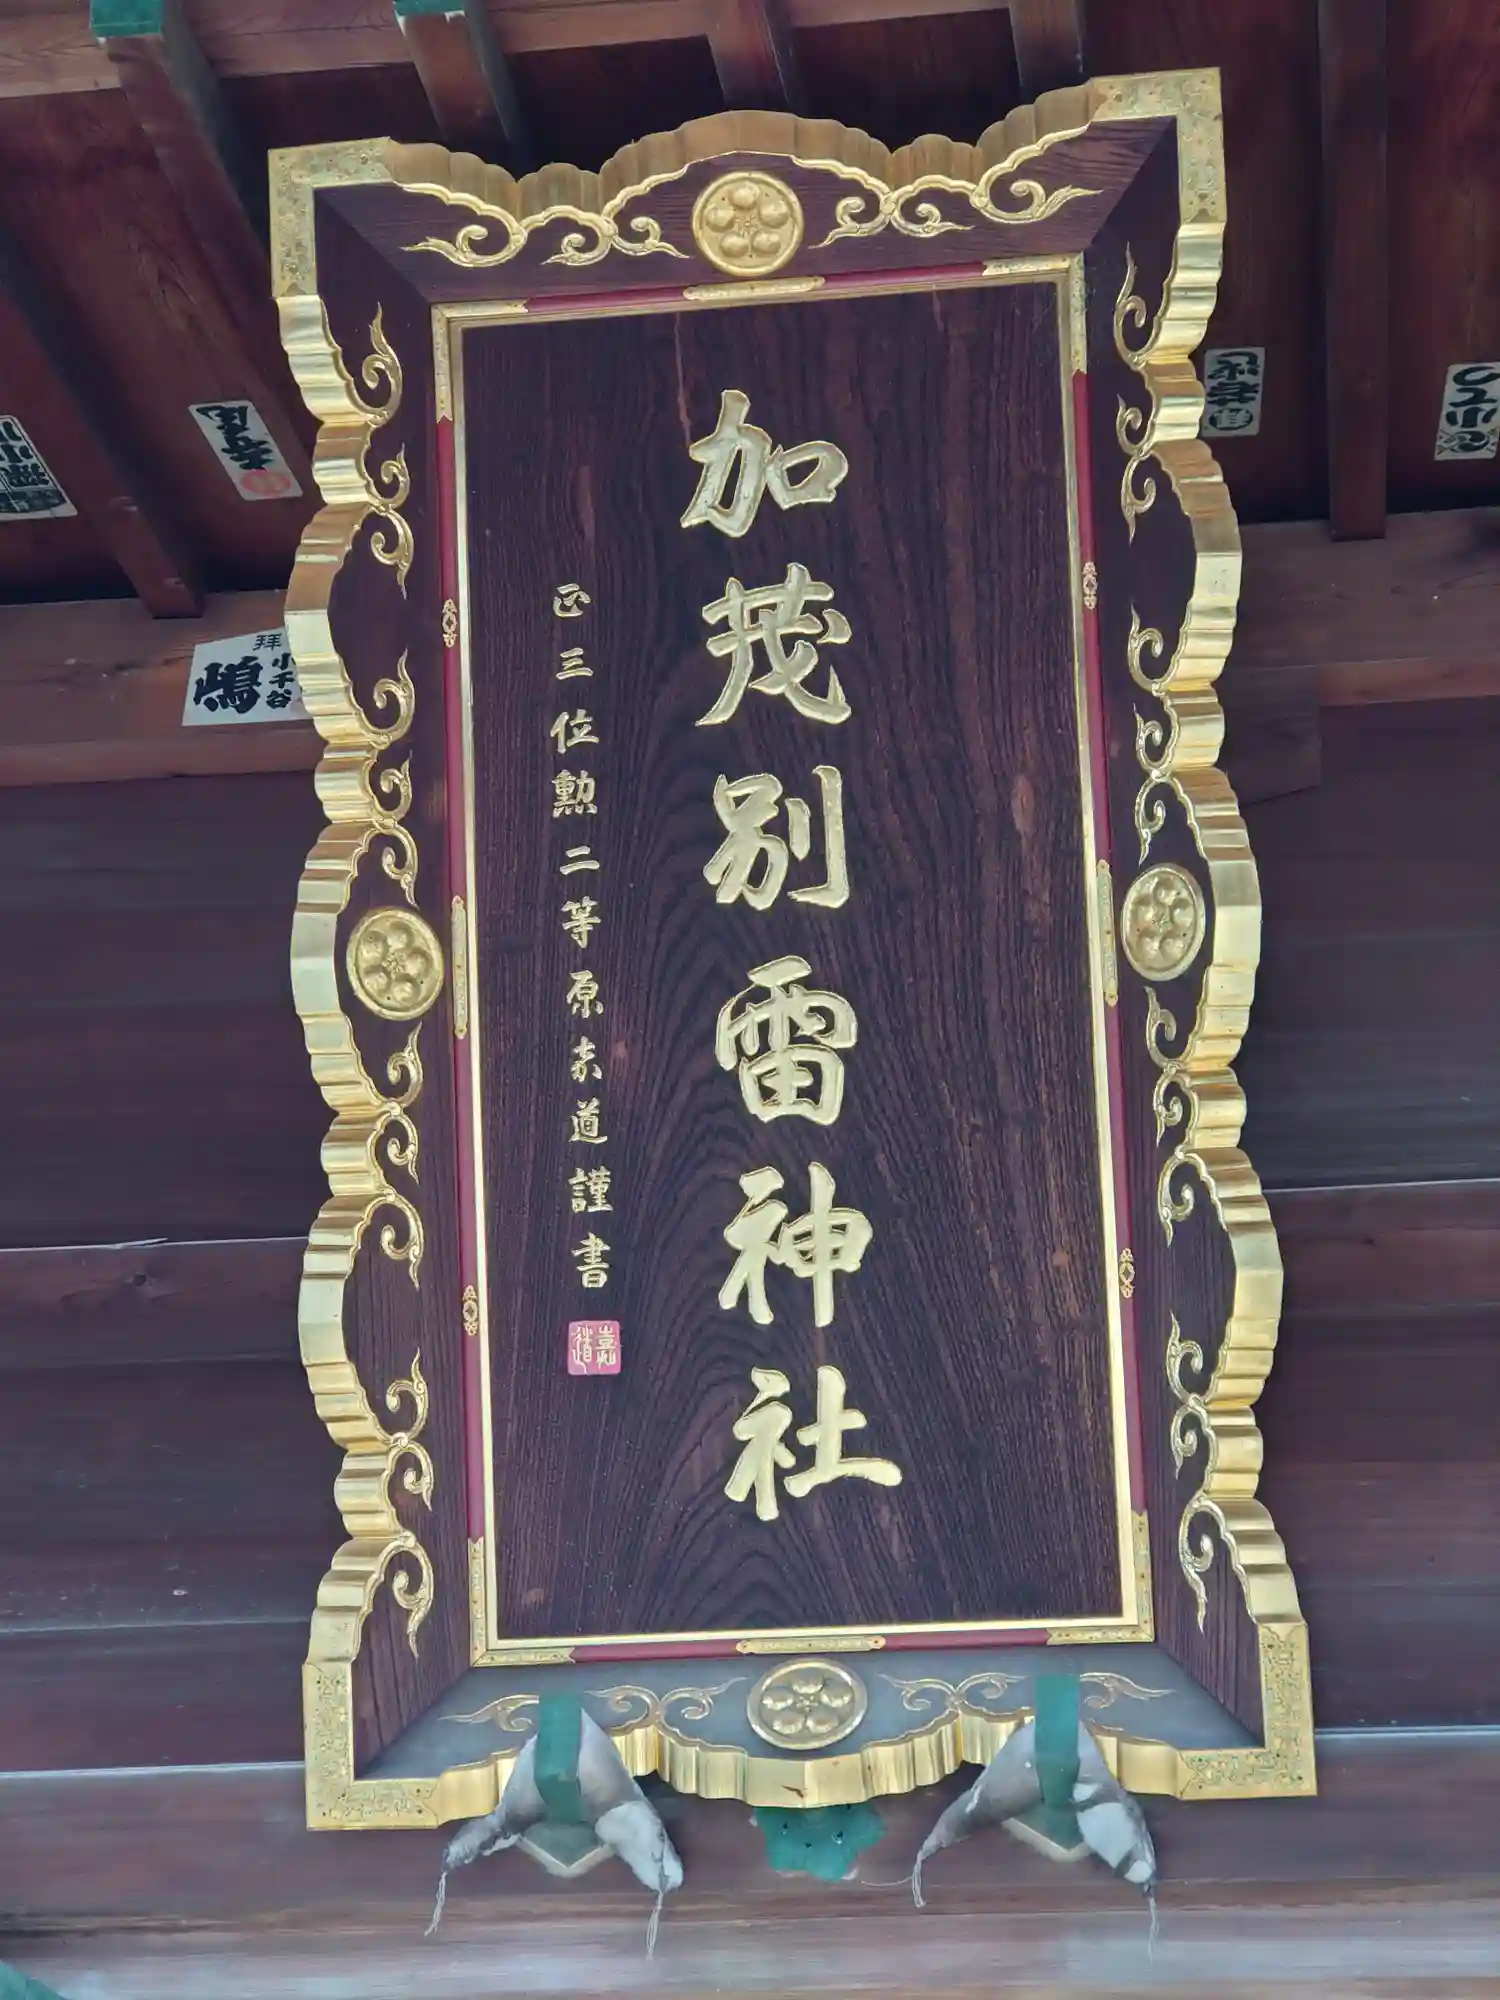 加茂別雷神社
正三位勲二等原嘉道謹書
嘉道
拝
小千谷
嶋